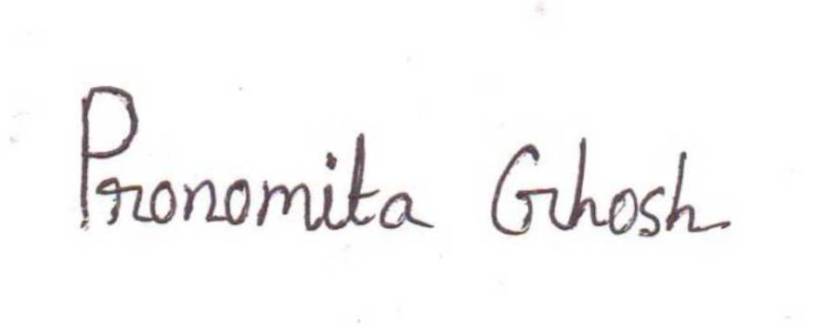 Pronomita Ghosh